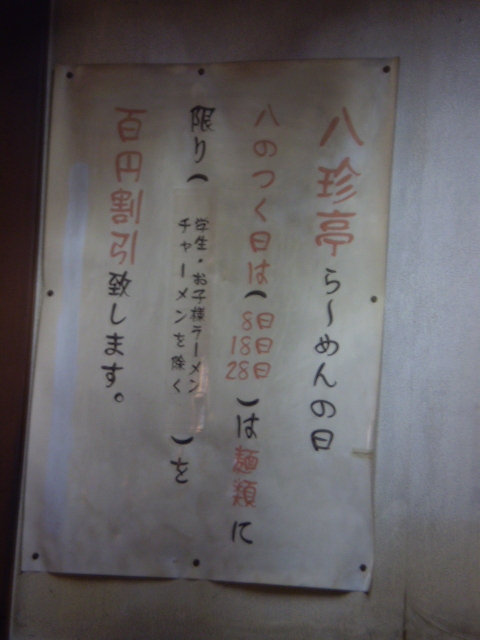 八珍亭ら〜めんの日
八のつく日は(8日
18日
28日)は麺類に
限り(学生・お子様ラーメン
チャーメンを除く)を
百円割引致します。